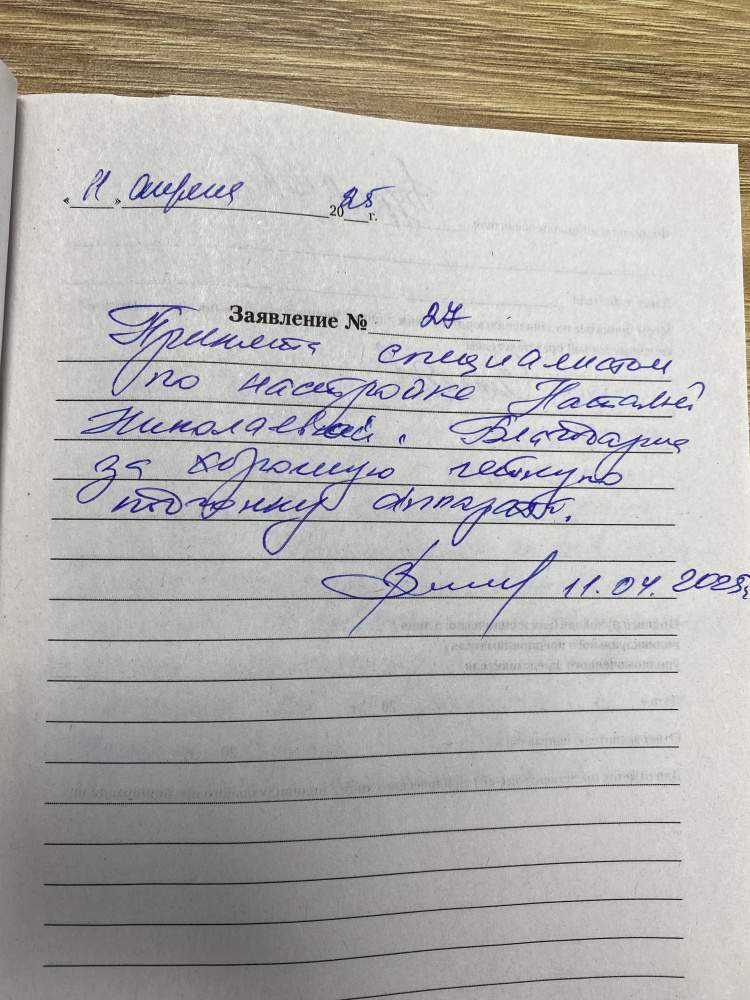 « 11 » апреля 2025 г.
Заявление № 27
Принята специалистом
по настройке Натальей
Николаевной. Благодарна
за хорошую четкую
подгонку аппарата.
11.04.2025г